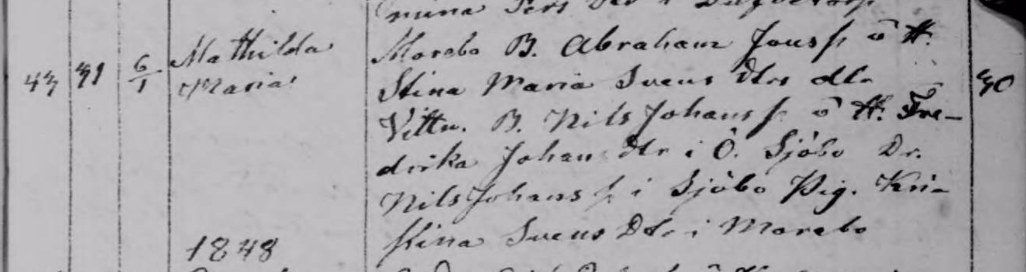 mina Pers Dtr i
44 31 6/1 Mathilda Marebo B. Abraham Jonss f. o H.
Maria Stina Maria Svens dtr dbr 30
Vittn. B. Nils Johanss f. o H. Fre-
drika Johans dtr i Ö. Sjöbo Dr.
Nils Johanss f. i Sjöbo Pig. Kri-
stina Svens Dtr i Marebo
1848